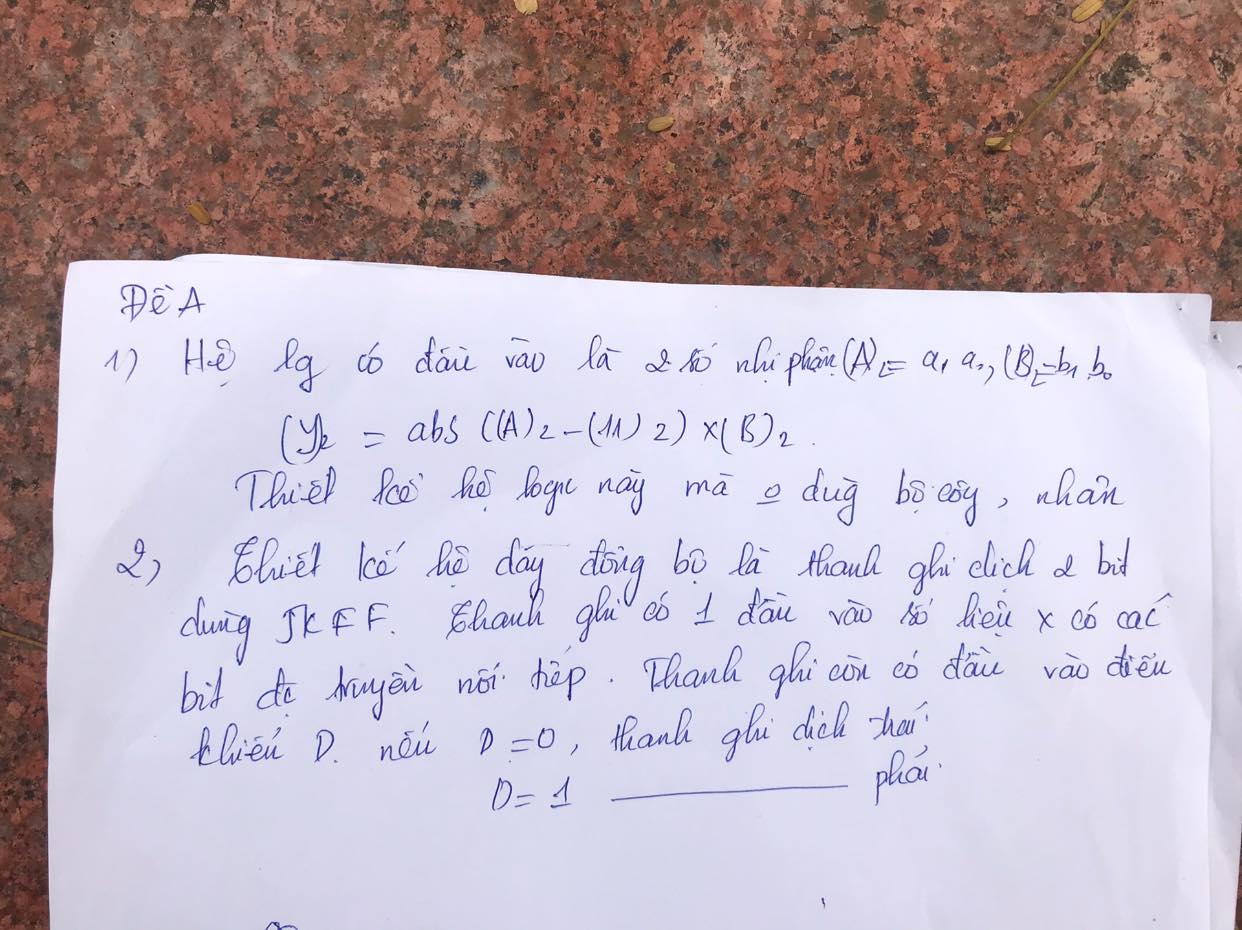 Đề A
1) Hệ lg có đầu vào là 2 số nhị phân (A)₂ = a₁ a₀, (B)₂ = b₁ b₀
(Y)₂ = abs ((A)₂ - (11)₂) x (B)₂.
Thiết kế hệ logic này mà o dùg bộ cộg, nhân
2) Thiết kế hệ dãy đồng bộ là thanh ghi dịch 2 bit
dùng JKFF. Thanh ghi có 1 đầu vào số liệu x có các
bit đc truyền nối tiếp. Thanh ghi còn có đầu vào điều
khiển D. nếu D = 0, thanh ghi dịch trái.
D = 1 ——— phải.